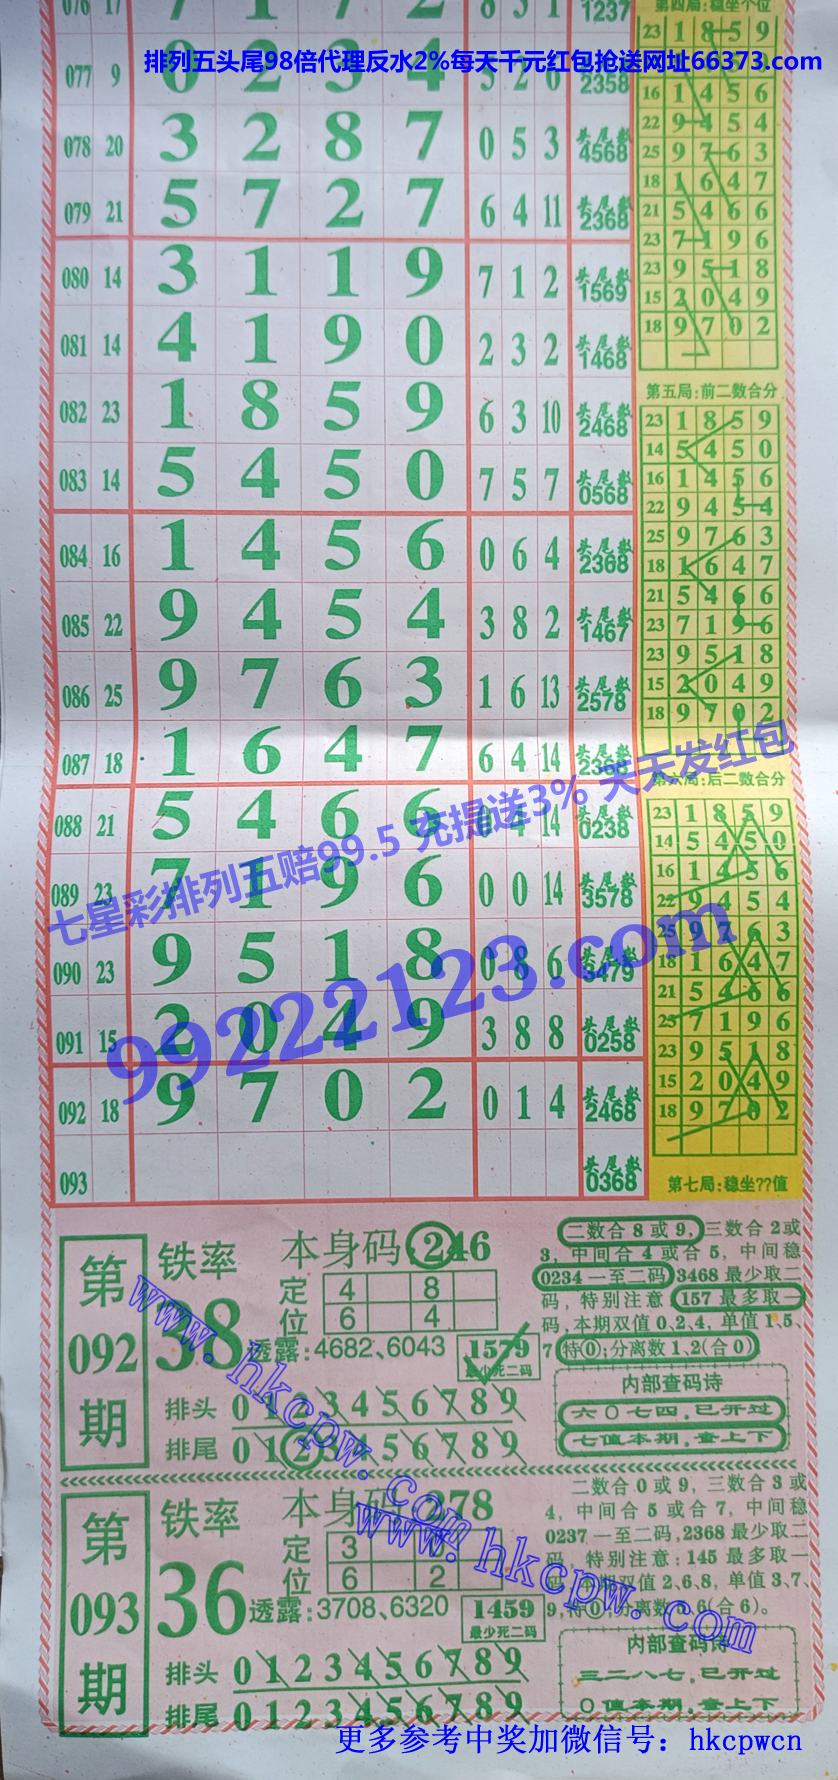 076 17 7 1 7 2 8 3 1 1237
排列五头尾98倍代理反水2%每天千元红包抢送网址66373.com
077 9 0 2 3 4 5 2 6 头尾数 2358
078 20 3 2 8 7 0 5 3 头尾数 4568
079 21 5 7 2 7 6 4 11 头尾数 2368
080 14 3 1 1 9 7 1 2 头尾数 1569
081 14 4 1 9 0 2 3 2 头尾数 1468
082 23 1 8 5 9 6 3 10 头尾数 2468
083 14 5 4 5 0 7 5 7 头尾数 0568
084 16 1 4 5 6 0 6 4 头尾数 2368
085 22 9 4 5 4 3 8 2 头尾数 1467
086 25 9 7 6 3 1 6 13 头尾数 2578
087 18 1 6 4 7 6 4 14 头尾数 2368
088 21 5 4 6 6 0 4 14 头尾数 0238
089 23 7 1 9 6 0 0 14 头尾数 3578
090 23 9 5 1 8 0 8 6 头尾数 3479
091 15 2 0 4 9 3 8 8 头尾数 0258
092 18 9 7 0 2 0 1 4 头尾数 2468
093 头尾数 0368
第四局:稳坐个位
23 1 8 5 9
16 1 4 5 6
22 9 4 5 4
25 9 7 6 3
18 1 6 4 7
21 5 4 6 6
23 7 1 9 6
23 9 5 1 8
15 2 0 4 9
18 9 7 0 2
第五局:前二数合分
23 1 8 5 9
14 5 4 5 0
16 1 4 5 6
22 9 4 5 4
25 9 7 6 3
18 1 6 4 7
21 5 4 6 6
23 7 1 9 6
23 9 5 1 8
15 2 0 4 9
18 9 7 0 2
第六局:后二数合分
23 1 8 5 9
14 5 4 5 0
16 1 4 5 6
22 9 4 5 4
25 9 7 6 3
18 1 6 4 7
21 5 4 6 6
23 7 1 9 6
23 9 5 1 8
15 2 0 4 9
18 9 7 0 2
第七局:稳坐??值
七星彩排列五赔99.5 充提送3% 天天发红包
99222123.com
第092期
铁率
38
本身码:246
定位
4 8
6 4
透露:4682、6043
1579
最少死二码
排头 0 1 2 3 4 5 6 7 8 9
排尾 0 1 2 3 4 5 6 7 8 9
二数合8或9,三数合2或
3,中间合4或合5,中间稳
0234一至二码,3468最少取二
码,特别注意:157最多取一
码,本期双值0、2、4,单值1、5、
7,特(0);分离数1、2(合0)
内部查码诗
六〇七四,已开过
七值本期,查上下
www.hkcpw.com
第093期
铁率
36
本身码:278
定位
3
6 2
透露:3708、6320
1459
最少死二码
排头 0 1 2 3 4 5 6 7 8 9
排尾 0 1 2 3 4 5 6 7 8 9
二数合0或9,三数合3或
4,中间合5或合7,中间稳
0237一至二码,2368最少取二
码,特别注意:145最多取一
码,本期双值2、6、8,单值3、7、
9,特(0);分离数 6(合6)。
内部查码诗
三二八七,已开过
〇值本期,查上下
www.hkcpw.com
更多参考中奖加微信号：hkcpwcn